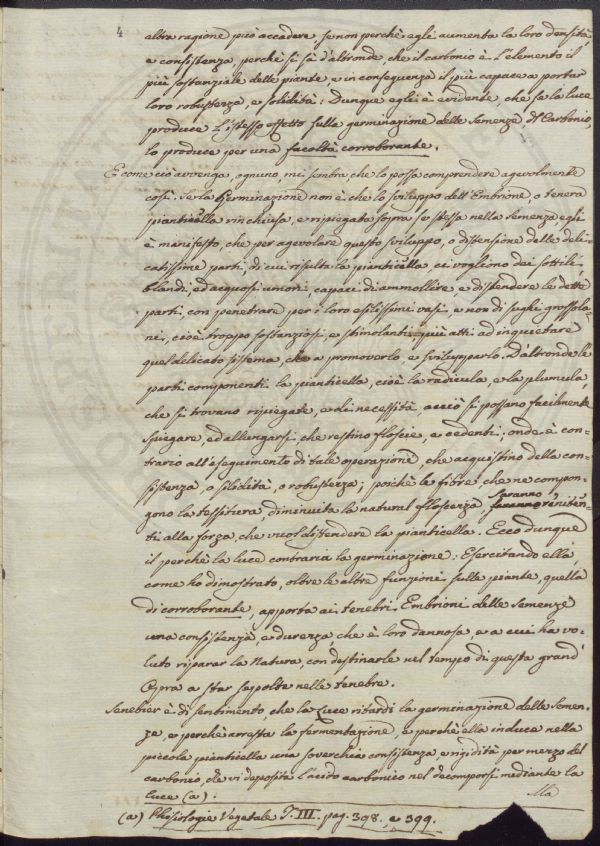 4
altra ragione può accadere, se non perchè egli aumenta la loro densità,
e consistenza, perchè si sà d'altronde, che il carbonio è l'elemento il
più sostanziale delle piante, e in conseguenza il più capace a portar
loro robustezza, e solidità: Dunque egli è evidente, che se la luce
produce l'istesso effetto sulla germinazione delle semenze, del Carbonio,
lo produce per una facoltà corroborante.
E come ciò avvenga, ognuno, mi sembra che lo possa comprendere agevolmente
così. Se la Germinazione non è che lo sviluppo dell'Embrione, o tenera
pianticella rinchiusa, e ripiegata sopra se stessa nella semenza, egli
è manifesto, che per agevolare questo sviluppo, o distensione delle deli-
catissime parti, di cui risulta la pianticella, ci vogliono dei sottili
blandi, ed acquosi umori, capaci di ammollire, e distendere le dette
parti, con penetrare per i loro esilissimi vasi, e non di sughi grossola-
ni, cioè troppo sostanziosi, e stimolanti più atti ad inquietare
quel delicato sistema, che a promoverlo, e svilupparlo. D'altronde le
parti componenti la pianticella, cioè la radicula, e la plumula,
che si trovano ripiegate, è di necessità, acciò si possano facilmente
spiegare, ed allungarsi, che restino floscie, e cedenti; onde è con-
trario all'eseguimento di tale operazione, che acquistino della con-
sistenza, o solidità, o robustezza; poichè le fibre, che ne compon-
gono la tessitura diminuita la natural floscezza, saranno reniten-
ti alla forza, che vuol distendere la pianticella. Ecco dunque
il perchè la luce contraria la germinazione: Esercitando ella,
come ho dimostrato, oltre le altre funzioni sulle piante, quella
di corroborante, apporta ai teneri Embrioni delle semenze
una consistenza, e durezza, che è loro dannosa, e a cui ha vo-
luto riparar la Natura, con destinarle nel tempo di questa grand'
Opra a star sepolte nelle tenebre.
Senebier è di sentimento, che la Luce ritardi la germinazione delle semen-
ze, e perchè arresta la fermentazione, e perchè ella induce nella
piccola pianticella una soverchia consistenza, e rigidità per mezzo del
carbonio, che vi deposita l'acido carbonico nel decomporsi mediante la
luce (a).
Ma
(a) Phisiologie Vegetale T. III. pag. 398. e 399.